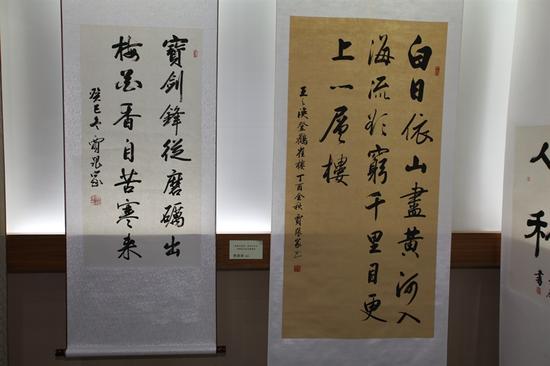 白日依山盡黃河入
海流欲窮千里目更
上一層樓
王之渙登鸛雀樓 丁酉金秋
寶劍鋒從磨礪出
梅花香自苦寒来
癸巳冬